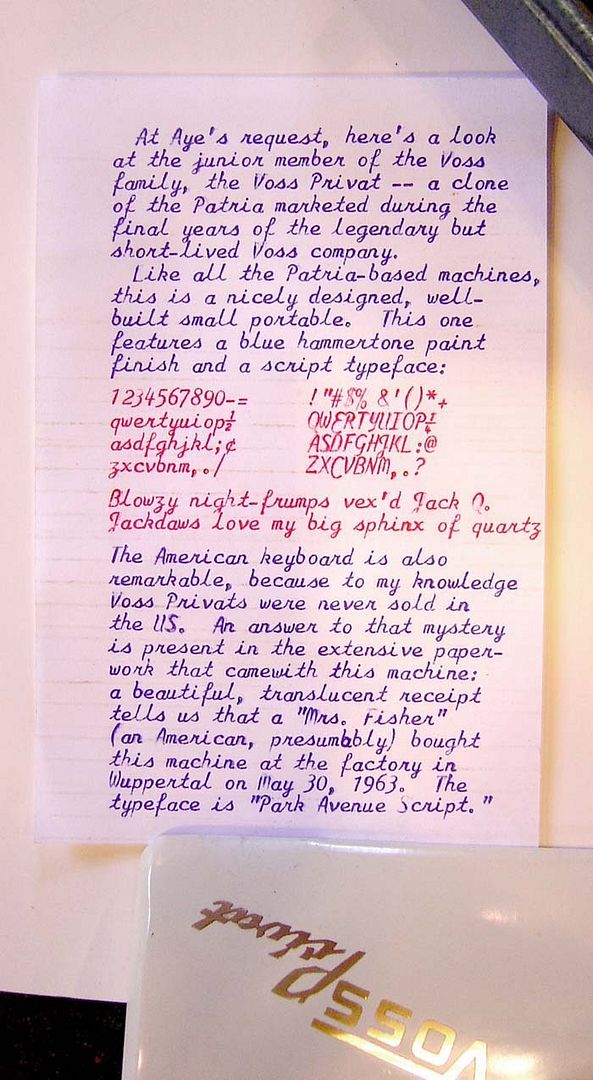 At Aye's request, here's a look
at the junior member of the Voss
family, the Voss Privat -- a clone
of the Patria marketed during the
final years of the legendary but
short-lived Voss company.
Like all the Patria-based machines,
this is a nicely designed, well-
built small portable. This one
features a blue hammertone paint
finish and a script typeface:
1234567890-= !"#$% &'()*+
qwertyuiop½ QWERTYUIOP¼
asdfghjkl;¢ ASDFGHJKL:@
zxcvbnm,./ ZXCVBNM,.?
Blowzy night-frumps vex'd Jack Q.
Jackdaws love my big sphinx of quartz
The American keyboard is also
remarkable, because to my knowledge
Voss Privats were never sold in
the US. An answer to that mystery
is present in the extensive paper-
work that camewith this machine:
a beautiful, translucent receipt
tells us that a "Mrs. Fisher"
(an American, presumbbly) bought
this machine at the factory in
Wuppertal on May 30, 1963. The
typeface is "Park Avenue Script."
VOSS Privat